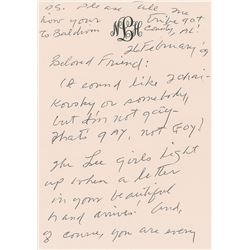 P.S. Please tell me
how your tribe got
to Baldwin County, AL!
NBH
26 February '09
Beloved Friend:
(I sound like Tchai-
kovsky or somebody,
but I'm not gay-
that's gAy, not GOY!)
The Lee girls light
up when a letter
in your beautiful
hand arrives! And,
of course, you are every